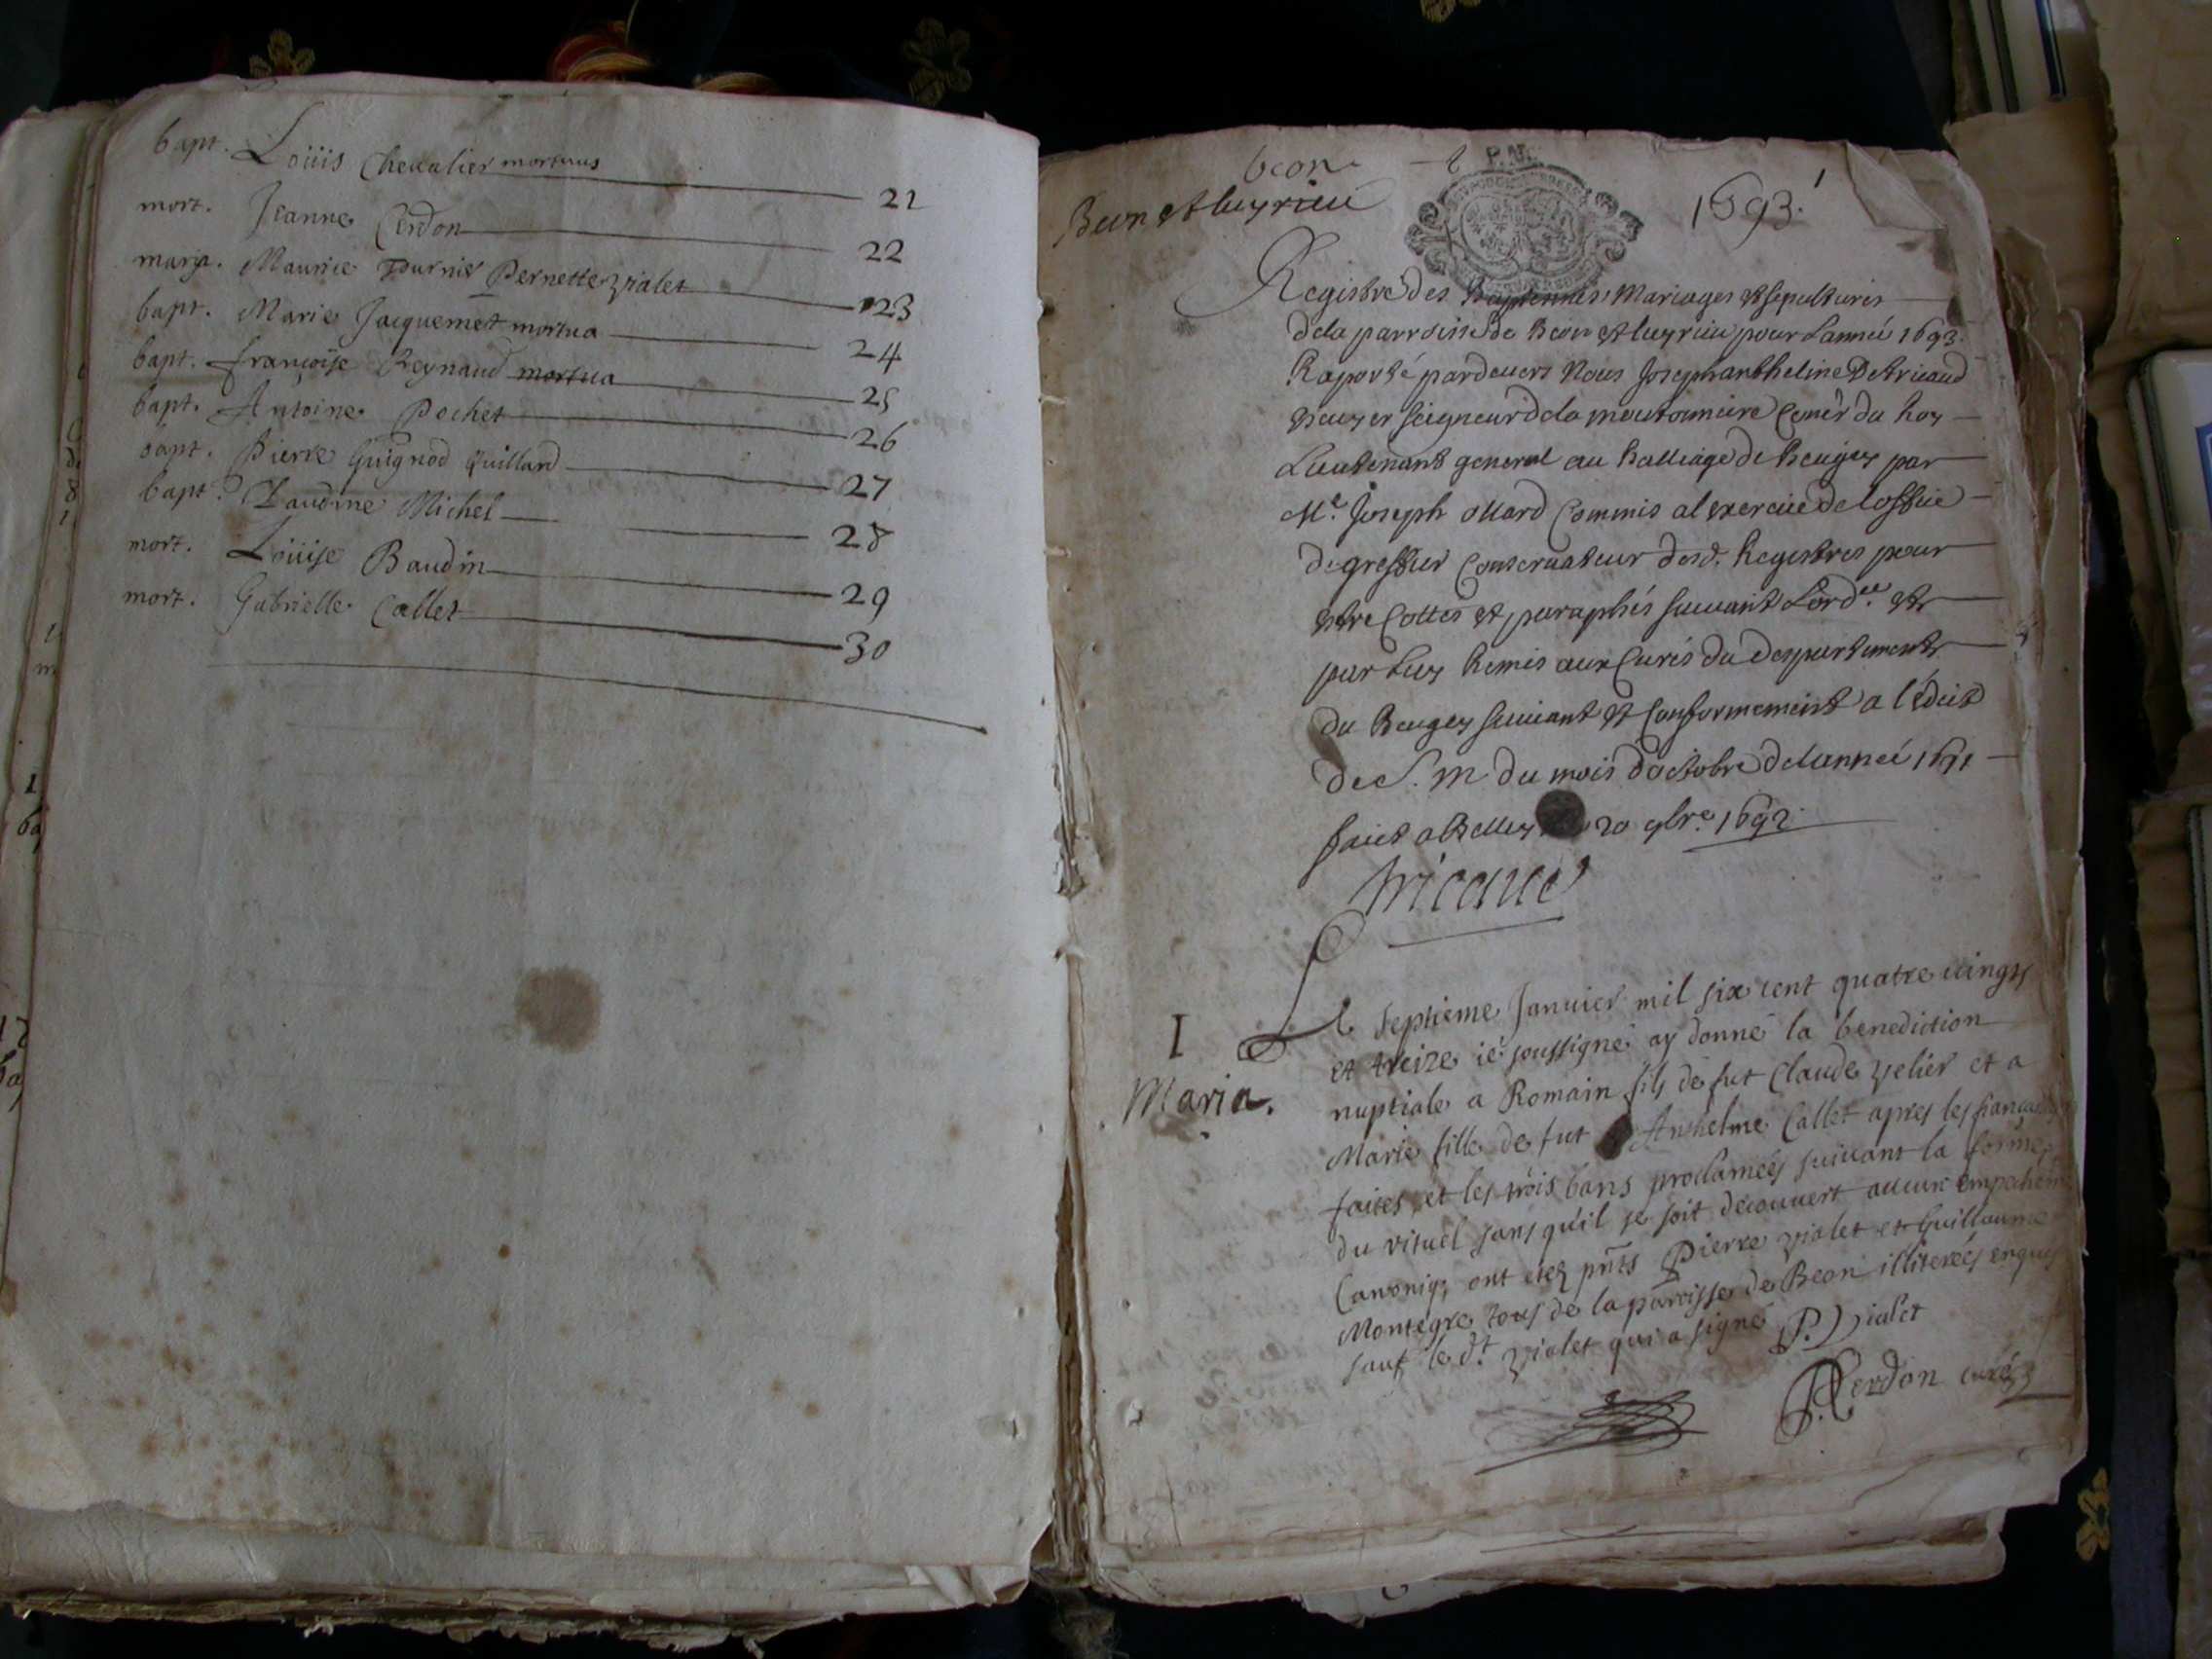 bapt. Loüis Chevalier mortuus 21
mort. Jeanne Cerdon 22
maria. Maurice Pernette Vialet 23
bapt. Marie Jacquemet mortua 24
bapt. françoise Reynaud mortua 25
bapt. Antoine Pochet 26
bapt. Pierre Guignod Quillard 27
bapt. Claudine Michel 28
mort. Loüise Baudin 29
mort. Gabrielle Callet 30
beon
Beon et luyrieu
P. M.
1693.
Registre des Baptesmes Mariages et sepultures
de la parroisse de Beon et luyrieu pour Lanneé 1693.
Raporté pardevers Nous Joseph anthelme De tricaud
seigneur de la du Roy
Lieutenant general au Balliage de Beugey par
Me. Joseph Commis al exercice de loffice
de greffier Conservateur desd. Registres pour
estre Cottes et paraphés suivant Lord.ce et
par Luy Remis aux Curés du despartement
du Beugey suivant et Conformement a l'édict
de S. M du mois doctobre de lanneé 1691
faict a Belley 20 9bre. 1692.
Tricaud
I
Maria.
Le septieme Janvier mil six cent quatre vingts
et treize ié soussigné ay donné la benediction
nuptiale a Romain fils de fut Claude velier et a
Marie fille de fut Anthelme Callet apres les fiancailles
faites et les trois bans proclameés suivant la forme
du rituel sans qu'il se soit decouvert aucun empechem
Canoniq; ont etez pnts Pierre vialet et Guillaume
Montegre tous de la paroisse de Beon illitereés enquis
sauf le dt. vialet qui a signé P. Vialet
P. Cerdon curé